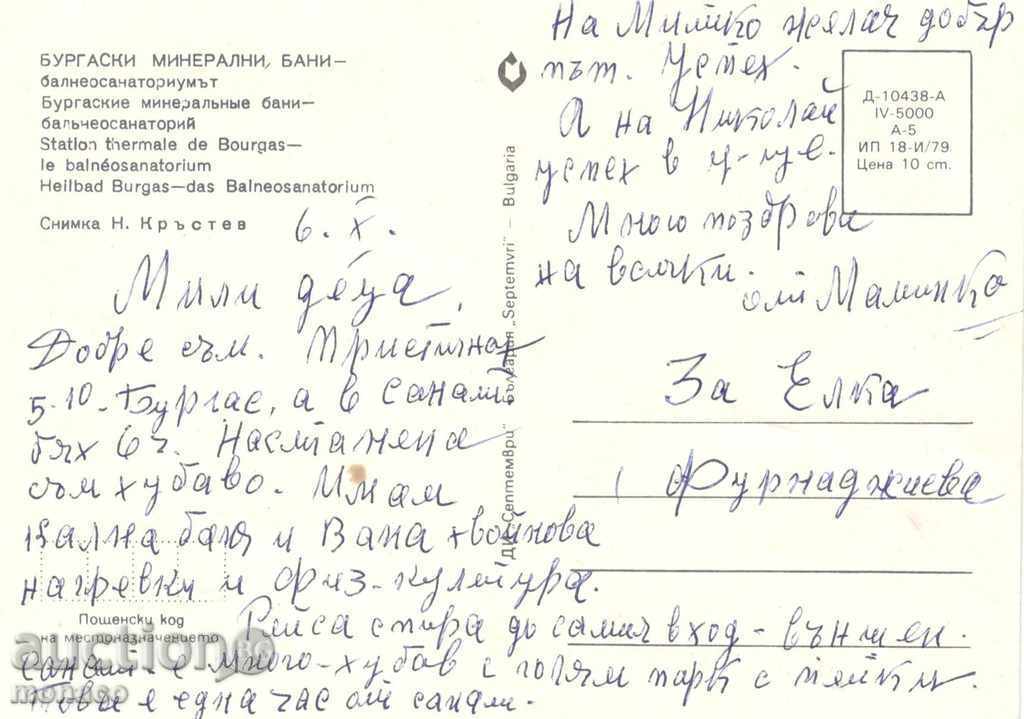 БУРГАСКИ МИНЕРАЛНИ БАНИ—
балнеосанаториумът
Бургаские минеральные бани—
бальнеосанаторий
Station thermale de Bourgas—
le balnéosanatorium
Heilbad Burgas—das Balneosanatorium
Снимка Н. Кръстев
6. X.
Мили деца,
Добре съм. Пристигнах
5.10. Бургас, а в санат.
бях 6 ч. Настанена
съм хубаво. Имам
кална баня и Вана хвойнова
нагревки и физ-култура.
Рейса спира до самия вход - външен.
санат. е много-хубав с голям парк с пейки.
е една час от санат.
На Митко желая добър
път. Успех.
А на Николай
успех в
Много поздрави
на всички.
от Маминка
За Елка
Фурнаджиева
ДИ „Септември" — България „Septemvri" — Bulgaria
Д-10438-А
IV-5000
А-5
ИП 18-И/79
Цена 10 ст.
Пощенски код
на местоназначението
auction
monaco